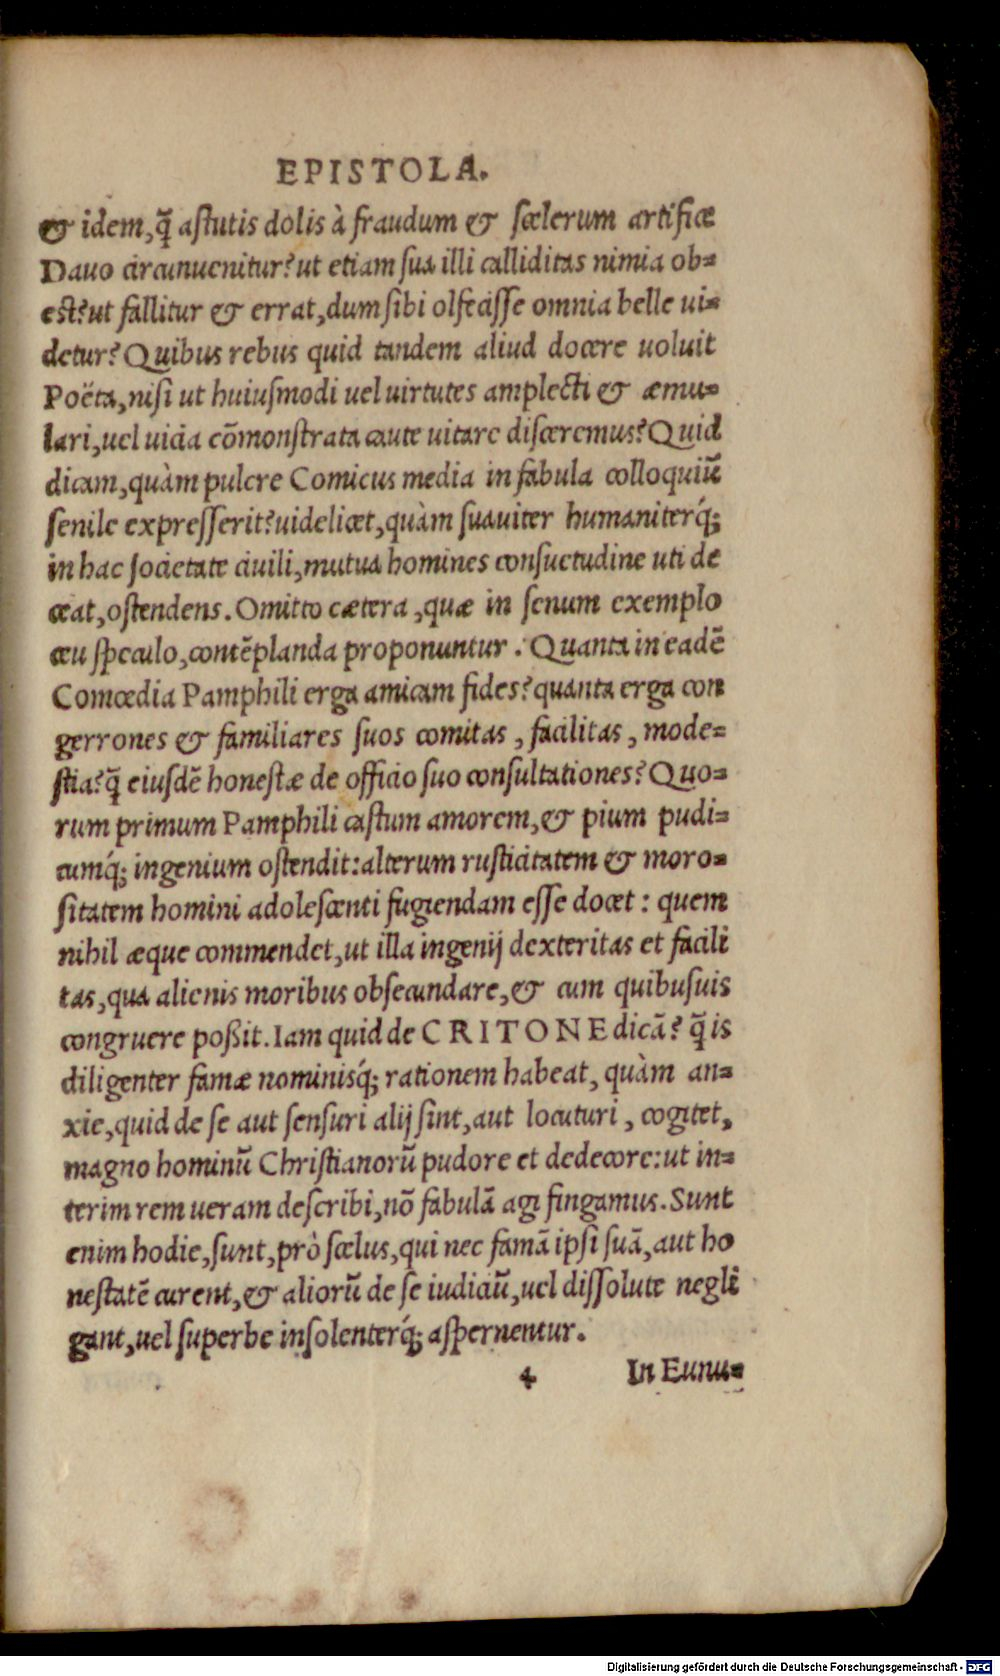 EPISTOLA.
& idem, q̃ astutis dolis à fraudum & scelerum artifice
Dauo circunuenitur? ut etiam sua illi calliditas nimia ob=
est? ut fallitur & errat, dum sibi olfecisse omnia belle ui=
detur? Quibus rebus quid tandem aliud docere uoluit
Poëta, nisi ut huiusmodi uel uirtutes amplecti & æmu=
lari, uel uicia cõmonstrata caute uitare disceremus? Quid
dicam, quàm pulcre Comicus media in fabula colloquiũ
senile expresserit? uidelicet, quàm suauiter humaniterq́;
in hac societate ciuili, mutua homines consuetudine uti de
ceat, ostendens. Omitto cætera, quæ in senum exemplo
ceu speculo, contẽplanda proponuntur. Quanta in eadẽ
Comœdia Pamphili erga amicam fides? quanta erga con
gerrones & familiares suos comitas, facilitas, mode=
stia? q̃ eiusdẽ honestæ de officio suo consultationes? Quo=
rum primum Pamphili castum amorem, & pium pudi=
cumq́; ingenium ostendit: alterum rusticitatem & moro=
sitatem homini adolescenti fugiendam esse docet: quem
nihil æque commendet, ut illa ingenij dexteritas et facili
tas, qua alienis moribus obsecundare, & cum quibusuis
congruere poßit. Iam quid de CRITONE dicã? q̃ is
diligenter famæ nominisq́; rationem habeat, quàm an=
xie, quid de se aut sensuri alij sint, aut locuturi, cogitet,
magno hominũ Christianorũ pudore et dedecore: ut in=
terim rem ueram describi, nõ fabulã agi fingamus. Sunt
enim hodie, sunt, prò scelus, qui nec famã ipsi suã, aut ho
nestatẽ curent, & aliorũ de se iudiciũ, uel dissolute negli
gant, uel superbe insolenterq́; aspernentur.
4 In Eunu=
Digitalisierung gefördert durch die Deutsche Forschungsgemeinschaft - DFG